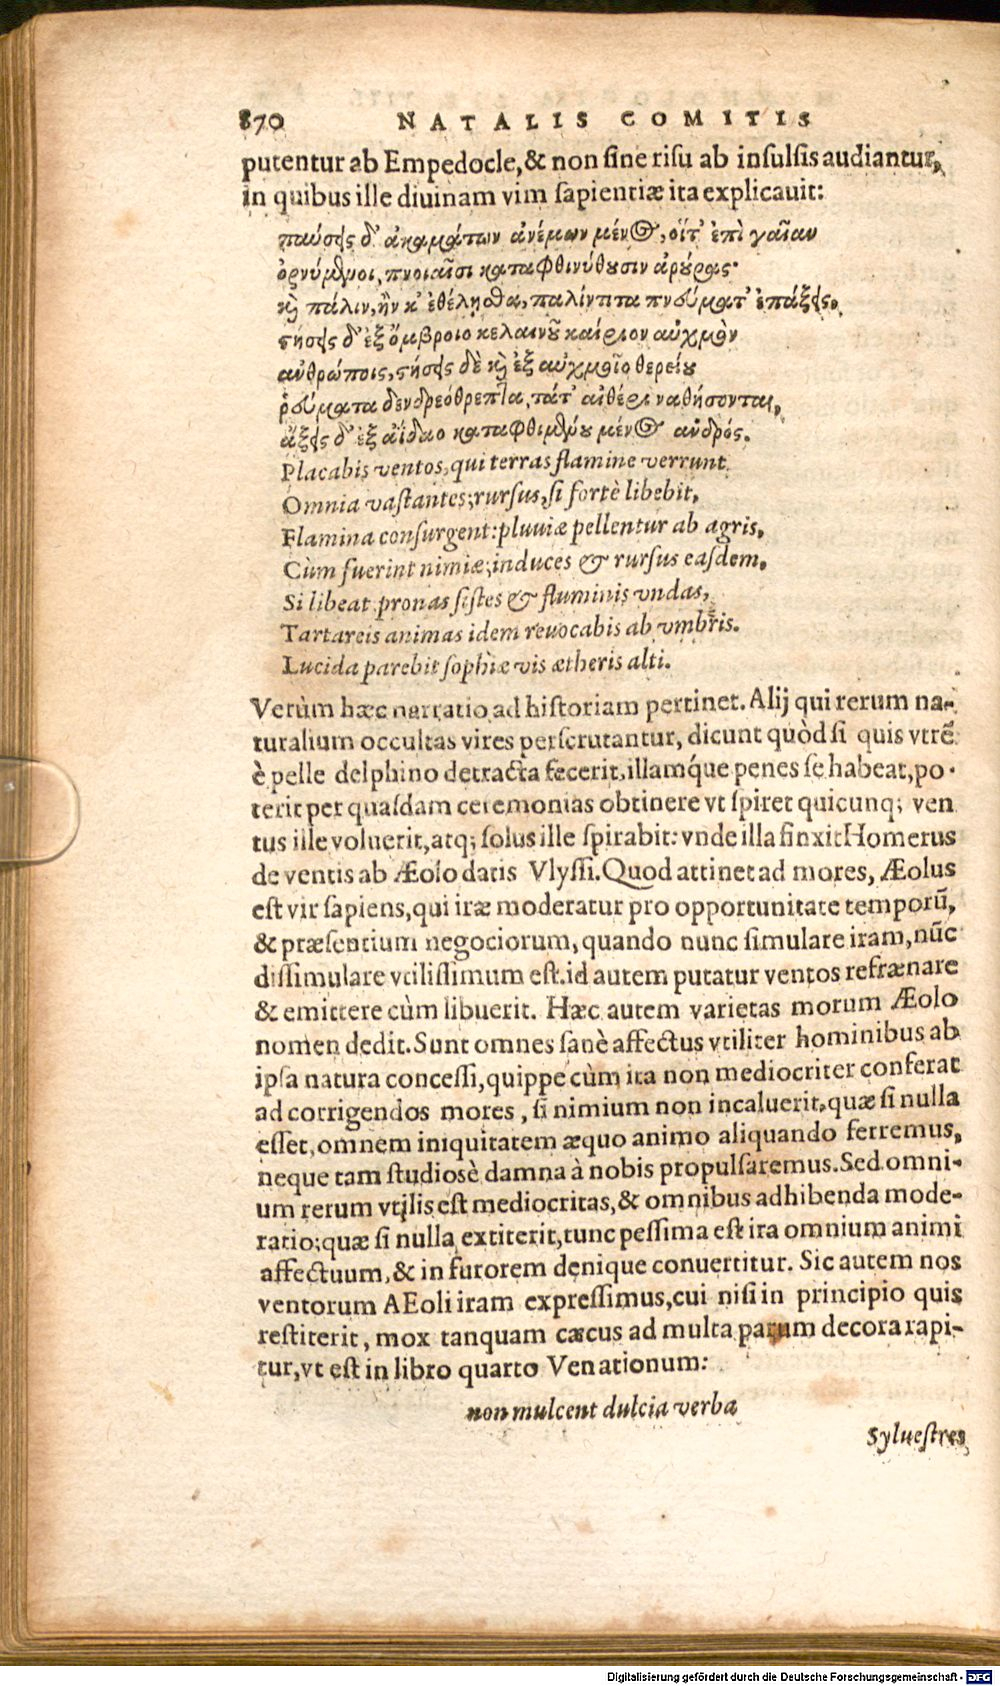 870 NATALIS COMITIS
putentur ab Empedocle, & non sine risu ab insulsis audiantur,
in quibus ille diuinam vim sapientiæ ita explicauit:
παύσεις δ' ἀκαμάτων ἀνέμων μένος, οἵτ' ἐπὶ γαῖαν
ὀρνύμενοι, πνοιαῖσι καταφθινύθουσιν ἀρούρας·
καὶ πάλιν, ἢν κ' ἐθέλησθα, παλίντιτα πνεύματ' ἐπάξεις.
στήσεις δ' ἐξ ὄμβροιο κελαινοῦ καίριον αὐχμὸν
ἀνθρώποις, στήσεις δὲ καὶ ἐξ αὐχμοῖο θερείου
ῥεύματα δενδρεόθρεπτα, τάτ' αἰθέρι ναθήσονται,
ἄξεις δ' ἐξ ἀΐδαο καταφθιμένου μένος ἀνδρός.
Placabis ventos, qui terras flamine verrunt
Omnia vaſtantes; rurſus, ſi fortè libebit,
Flamina conſurgent: pluuiæ pellentur ab agris,
Cùm fuerint nimiæ; induces & rurſus eaſdem,
Si libeat pronas ſiſtes & fluminis vndas,
Tartareis animas idem reuocabis ab vmbris.
Lucida parebit ſophiæ vis ætheris alti.
Verùm hæc narratio ad hiſtoriam pertinet. Alij qui rerum na-
turalium occultas vires perſcrutantur, dicunt quòd ſi quis vtrē
è pelle delphino detracta fecerit, illamq́ue penes ſe habeat, po-
terit per quaſdam ceremonias obtinere vt ſpiret quicunq; ven
tus ille voluerit, atq; ſolus ille ſpirabit: vnde illa finxit Homerus
de ventis ab Æolo datis Vlyſſi. Quod attinet ad mores, Æolus
eſt vir ſapiens, qui iræ moderatur pro opportunitate temporū,
& præſentium negociorum, quando nunc ſimulare iram, nūc
diſſimulare vtiliſſimum eſt. id autem putatur ventos refrænare
& emittere cùm libuerit. Hæc autem varietas morum Æolo
nomen dedit. Sunt omnes ſanè affectus vtiliter hominibus ab
ipſa natura conceſſi, quippe cùm ira non mediocriter conferat
ad corrigendos mores, ſi nimium non incaluerit, quæ ſi nulla
eſſet, omnem iniquitatem æquo animo aliquando ferremus,
neque tam ſtudiosè damna à nobis propulſaremus. Sed omni-
um rerum vtilis eſt mediocritas, & omnibus adhibenda mode-
ratio; quæ ſi nulla extiterit, tunc peſſima eſt ira omnium animi
affectuum, & in furorem denique conuertitur. Sic autem nos
ventorum AEoli iram expreſſimus, cui niſi in principio quis
reſtiterit, mox tanquam cæcus ad multa parum decora rapi-
tur, vt eſt in libro quarto Venationum:
non mulcent dulcia verba
Sylueſtres
Digitalisierung gefördert durch die Deutsche Forschungsgemeinschaft - DFG